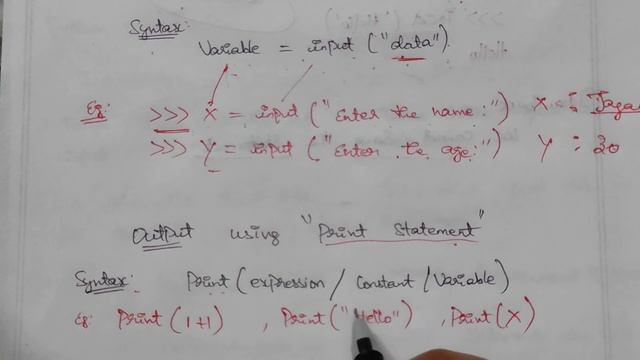 Syntax:
Variable = input ("data").
Eg: >>> X = input ("Enter the name:") X : Jaga
>>> Y = input ("Enter the age:") Y : 30
Output using "Print Statement"
Syntax: Print (expression / Constant / Variable)
Eg: Print (1+1) , Print ("Hello") , Print (X)